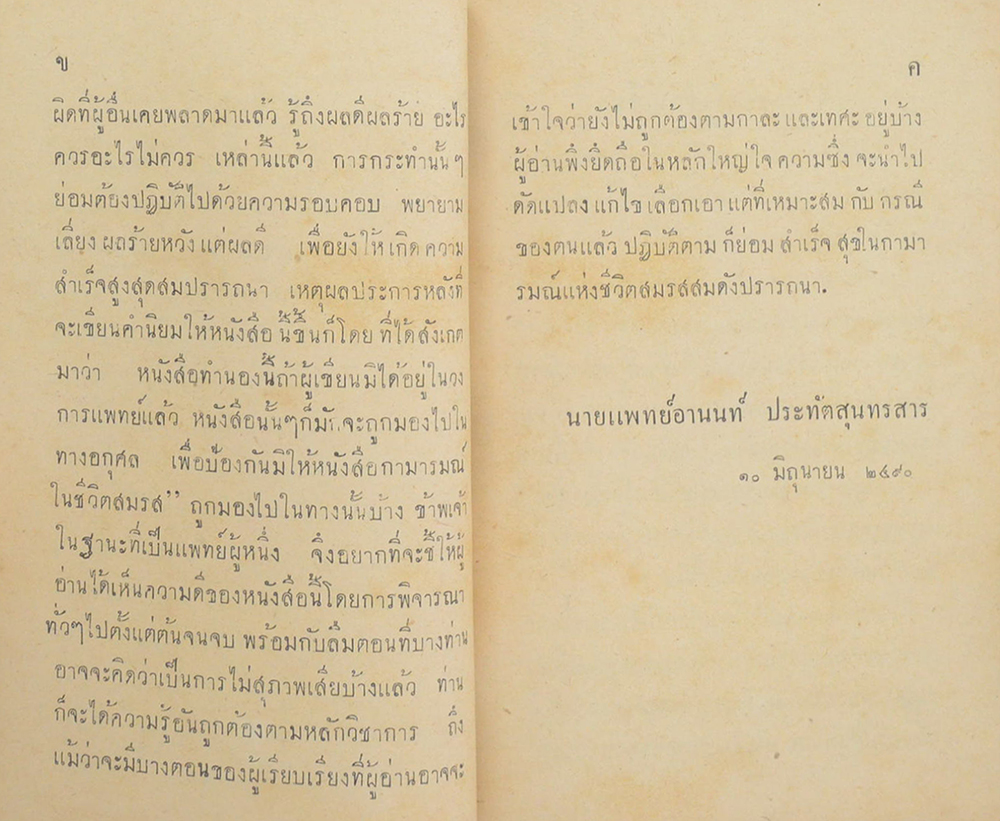 ข
ผิดที่ผู้อื่นเคยพลาดมาแล้ว รู้ถึงผลดีผลร้าย อะไร
ควรอะไรไม่ควร เหล่านี้แล้ว การกระทำนั้นๆ
ย่อมต้องปฏิบัติไปด้วยความรอบคอบ พยายาม
เลี่ยง ผลร้ายหวัง แต่ผลดี เพื่อยังให้ เกิด ความ
สำเร็จสูงสุดสมปรารถนา เหตุผลประการหลังที่
จะเขียนคำนิยมให้หนังสือ นี้ขึ้นก็โดย ที่ได้สังเกต
มาว่า หนังสือทำนองนี้ถ้าผู้เขียนมิได้อยู่ในวง
การแพทย์แล้ว หนังสือนั้นๆก็มักจะถูกมองไปใน
ทางอกุศล เพื่อป้องกันมิให้หนังสือกามารมณ์
ในชีวิตสมรส” ถูกมองไปในทางนั้นบ้าง ข้าพเจ้า
ในฐานะที่เป็นแพทย์ผู้หนึ่ง จึงอยากที่จะชี้ให้ผู้
อ่านได้เห็นความดีของหนังสือนี้โดยการพิจารณา
ทั่วๆไปตั้งแต่ต้นจนจบ พร้อมกับลืมตอนที่บางท่าน
อาจจะคิดว่าเป็นการไม่สุภาพเสียบ้างแล้ว ท่าน
ก็จะได้ความรู้อันถูกต้องตามหลักวิชาการ ถึง
แม้ว่าจะมีบางตอนของผู้เรียบเรียงที่ผู้อ่านอาจจะ
ค
เข้าใจว่ายังไม่ถูกต้องตามกาละ และเทศะ อยู่บ้าง
ผู้อ่านพึงยึดถือในหลักใหญ่ใจ ความซึ่ง จะนำไป
ดัดแปลง แก้ไข เลือกเอา แต่ที่เหมาะสม กับ กรณี
ของตนแล้ว ปฏิบัติตาม ก็ย่อม สำเร็จ สุขในกามา
รมณ์แห่งชีวิตสมรสสมดังปรารถนา.
นายแพทย์อานนท์ ประทัตสุนทรสาร
๑๐ มิถุนายน ๒๔๙๐